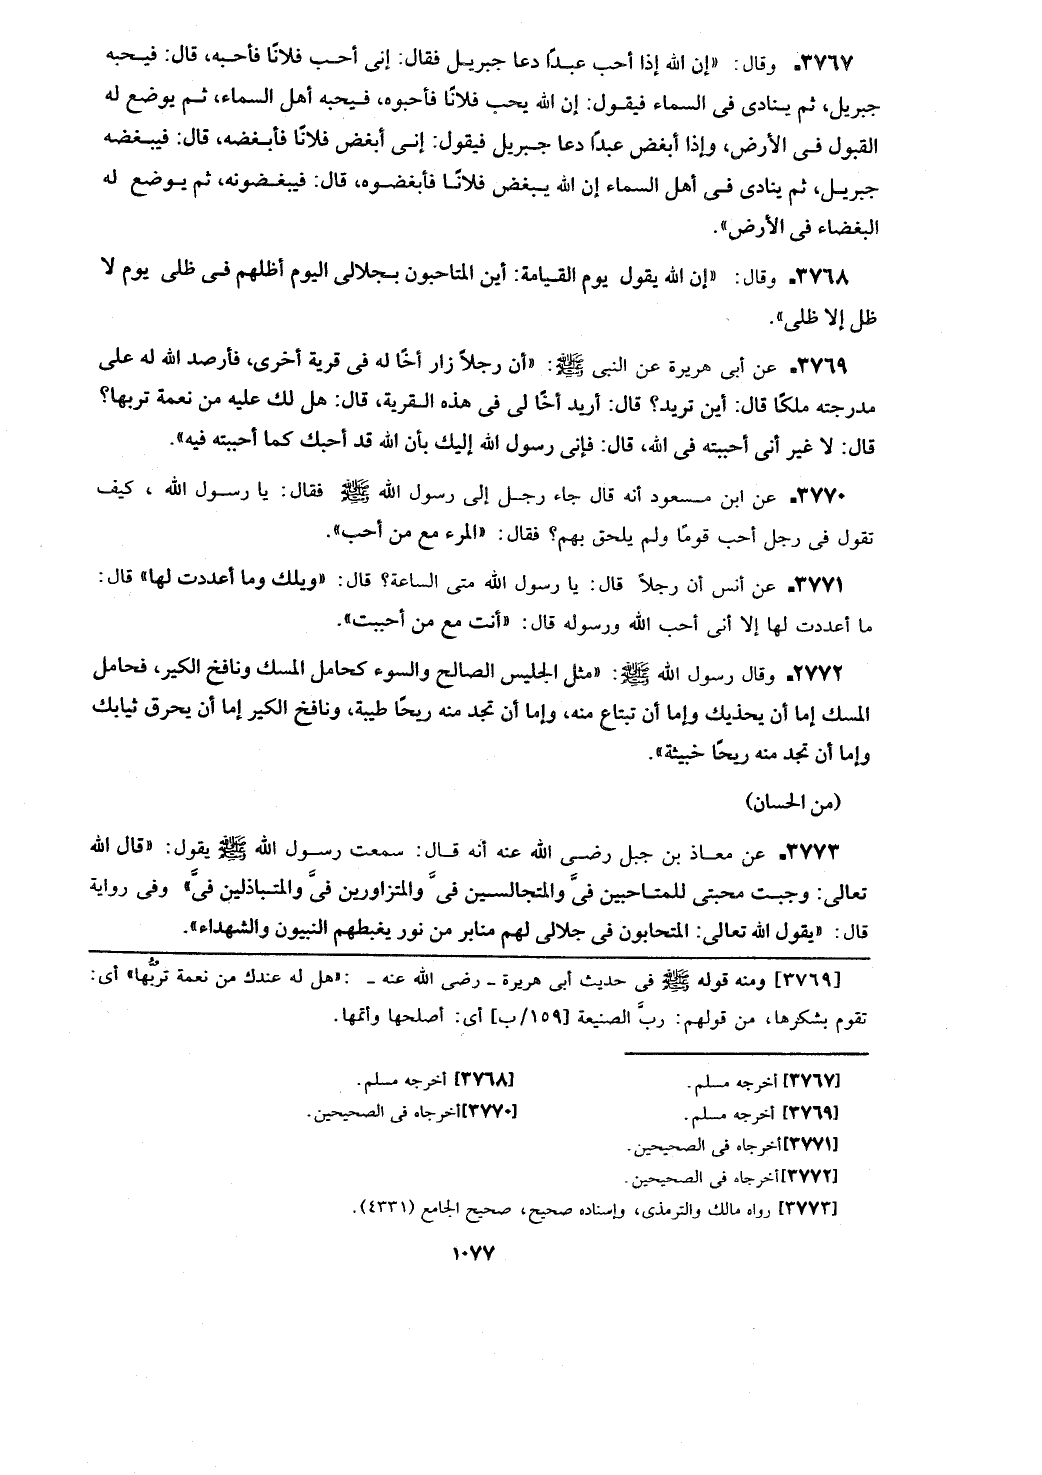 ٣٧٦٧ـ وقال: «إن الله إذا أحب عبدًا دعا جبريل فقال: إنى أحب فلانًا فأحبه، قال: فيحبه
جبريل، ثم ينادى فى السماء فيقول: إن الله يحب فلانًا فأحبوه، فيحبه أهل السماء، ثم يوضع له
القبول فى الأرض، وإذا أبغض عبدًا دعا جبريل فيقول: إنى أبغض فلانًا فأبغضه، قال: فيبغضه
جبريل، ثم ينادى فى أهل السماء إن الله يبغض فلانًا فأبغضوه، قال: فيبغضونه، ثم يوضع له
البغضاء فى الأرض».
٣٧٦٨ـ وقال: «إن الله يقول يوم القيامة: أين المتاحبون بجلالى اليوم أظلهم فى ظلى يوم لا
ظل إلا ظلى».
٣٧٦٩ـ عن أبى هريرة عن النبى ﷺ: «أن رجلاً زار أخًا له فى قرية أخرى، فأرصد الله له على
مدرجته ملكًا قال: أين تريد؟ قال: أريد أخًا لى فى هذه القرية، قال: هل لك عليه من نعمة تربها؟
قال: لا غير أنى أحببته فى الله، قال: فإنى رسول الله إليك بأن الله قد أحبك كما أحببته فيه».
٣٧٧٠ـ عن ابن مسعود أنه قال جاء رجل إلى رسول الله ﷺ فقال: يا رسول الله ، كيف
تقول فى رجل أحب قومًا ولم يلحق بهم؟ فقال: «المرء مع من أحب».
٣٧٧١ـ عن أنس أن رجلاً قال: يا رسول الله متى الساعة؟ قال: «ويلك وما أعددت لها» قال:
ما أعددت لها إلا أنى أحب الله ورسوله قال: «أنت مع من أحببت».
٢٧٧٢ـ وقال رسول الله ﷺ: «مثل الجليس الصالح والسوء كحامل المسك ونافخ الكير، فحامل
المسك إما أن يحذيك وإما أن تبتاع منه، وإما أن تجد منه ريحًا طيبة، ونافخ الكير إما أن يحرق ثيابك
وإما أن تجد منه ريحًا خبيثة».
(من الحسان)
٣٧٧٣ـ عن معاذ بن جبل رضى الله عنه أنه قال: سمعت رسول الله ﷺ يقول: «قال الله
تعالى: وجبت محبتى للمتاحبين فىَّ والمتجالسين فىَّ والمتزاورين فىَّ والمتباذلين فىَّ» وفى رواية
قال: «يقول الله تعالى: المتحابون فى جلالى لهم منابر من نور يغبطهم النبيون والشهداء».
[٣٧٦٩] ومنه قوله ﷺ فى حديث أبى هريرة ـ رضى الله عنه ـ :«هل له عندك من نعمة تربُّها» أى:
تقوم بشكرها، من قولهم: ربَّ الصنيعة [١٥٩/ب] أى: أصلحها وأتمها.
[٣٧٦٧] أخرجه مسلم. [٣٧٦٨] أخرجه مسلم.
[٣٧٦٩] أخرجه مسلم. [٣٧٧٠]أخرجاه فى الصحيحين.
[٣٧٧١]أخرجاه فى الصحيحين.
[٣٧٧٢]أخرجاه فى الصحيحين.
[٣٧٧٣] رواه مالك والترمذى، وإسناده صحيح، صحيح الجامع (٤٣٣١).
١٠٧٧